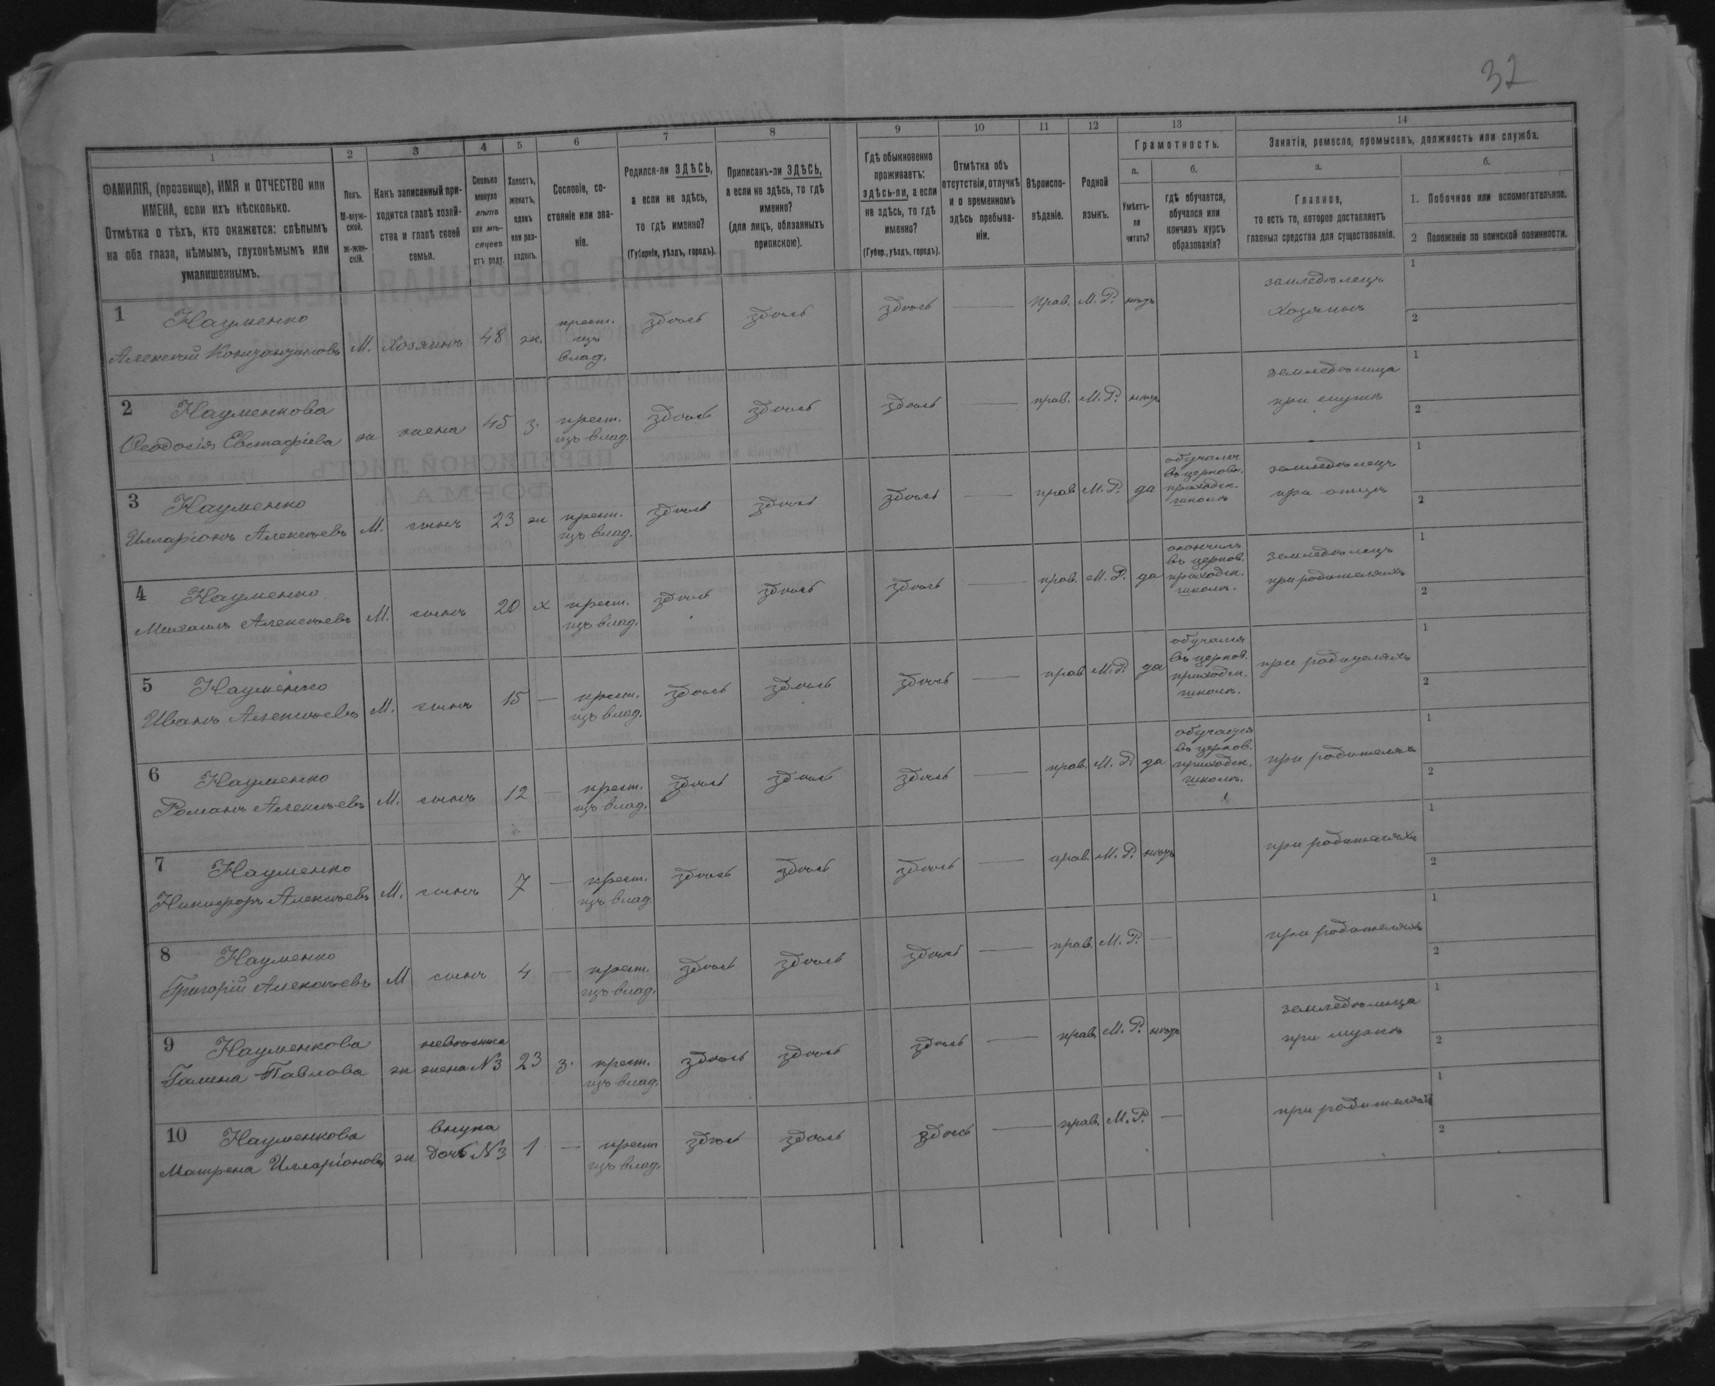 32
1 2 3 4 5 6 7 8 9 10 11 12 13 14
ФАМИЛІЯ, (прозвище), ИМЯ и ОТЧЕСТВО или
ИМЕНА, если ихъ нѣсколько.
Отмѣтка о тѣхъ, кто окажется: слѣпымъ
на оба глаза, нѣмымъ, глухонѣмымъ или
умалишеннымъ.
Полъ.
М-муж-
ской.
Ж-жен-
скій.
Какъ записанный при-
ходится главѣ хозяй-
ства и главѣ своей
семьи.
Сколько
минуло
лѣтъ
или мѣ-
сяцевъ
отъ роду.
Холостъ,
женатъ,
вдовъ
или раз-
веденъ.
Сословіе, со-
стояніе или зва-
ніе.
Родился-ли ЗДѢСЬ,
а если не здѣсь,
то гдѣ именно?
(Губернія, уѣздъ, городъ).
Приписанъ-ли ЗДѢСЬ,
а если не здѣсь, то гдѣ
именно?
(для лицъ, обязанныхъ
припискою).
Гдѣ обыкновенно
проживаетъ:
здѣсь-ли, а если
не здѣсь, то гдѣ
именно?
(Губер., уѣздъ, городъ).
Отмѣтка объ
отсутствіи, отлучкѣ
и о временномъ
здѣсь пребыва-
ніи.
Вѣроиспо-
вѣданіе.
Родной
языкъ.
Грамотность.
а.
Умѣетъ-
ли
читать?
б.
гдѣ обучается,
обучался или
кончилъ курсъ
образованія?
Занятіе, ремесло, промыселъ, должность или служба.
а.
Главное,
то есть то, которое доставляетъ
главныя средства для существованія.
б.
1. Побочное или вспомогательное.
2 Положеніе по воинской повинности.
1 Науменко
Алексѣй Константиновъ М. хозяинъ 48 ж. крест.
изъ
влад. здѣсь здѣсь здѣсь — прав. М. Р. нѣтъ земледѣлецъ
Хозяинъ 1
2
2 Науменкова
Ѳеодосія Евстафіева ж жена 45 з. крест.
изъ влад. здѣсь здѣсь здѣсь — прав. М. Р. нѣтъ земледѣлица
при мужѣ 1
2
3 Науменко
Илларіонъ Алексѣевъ М. сынъ 23 ж крест.
изъ влад. здѣсь здѣсь здѣсь — прав. М. Р. да обучался
въ церковн.
приходск.
школѣ земледѣлецъ
при отцѣ 1
2
4 Науменко
Михаилъ Алексѣевъ М. сынъ 20 х крест.
изъ влад. здѣсь здѣсь здѣсь — прав. М. Р. да окончилъ
въ церков.
приходск.
школѣ. земледѣлецъ
при родителяхъ 1
2
5 Науменко
Иванъ Алексѣевъ М. сынъ 15 — крест.
изъ влад. здѣсь здѣсь здѣсь — прав. М. Р. да обучался
въ церков.
приходск.
школѣ. при родителяхъ 1
2
6 Науменко
Романъ Алексѣевъ М. сынъ 12 — крест.
изъ влад. здѣсь здѣсь здѣсь — прав. М. Р. да обучался
въ церков.
приходск.
школѣ. при родителяхъ 1
2
7 Науменко
Никифоръ Алексѣевъ М. сынъ 7 — крест.
изъ влад. здѣсь здѣсь здѣсь — прав. М. Р. нѣтъ при родителяхъ 1
2
8 Науменко
Григорій Алексѣевъ М сынъ 4 — крест.
изъ влад. здѣсь здѣсь здѣсь — прав. М. Р. — при родителяхъ 1
2
9 Науменкова
Галина Павлова ж невѣстка
жена №3 23 з. крест.
изъ влад. здѣсь здѣсь здѣсь — прав. М. Р. нѣтъ земледѣлица
при мужѣ 1
2
10 Науменкова
Матрена Илларіонова ж внука
дочь №3 1 — крест
изъ влад. здѣсь здѣсь здѣсь — прав. М. Р. — при родителяхъ 1
2